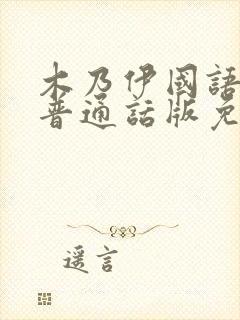 木乃伊國語
普通話版免
遥言